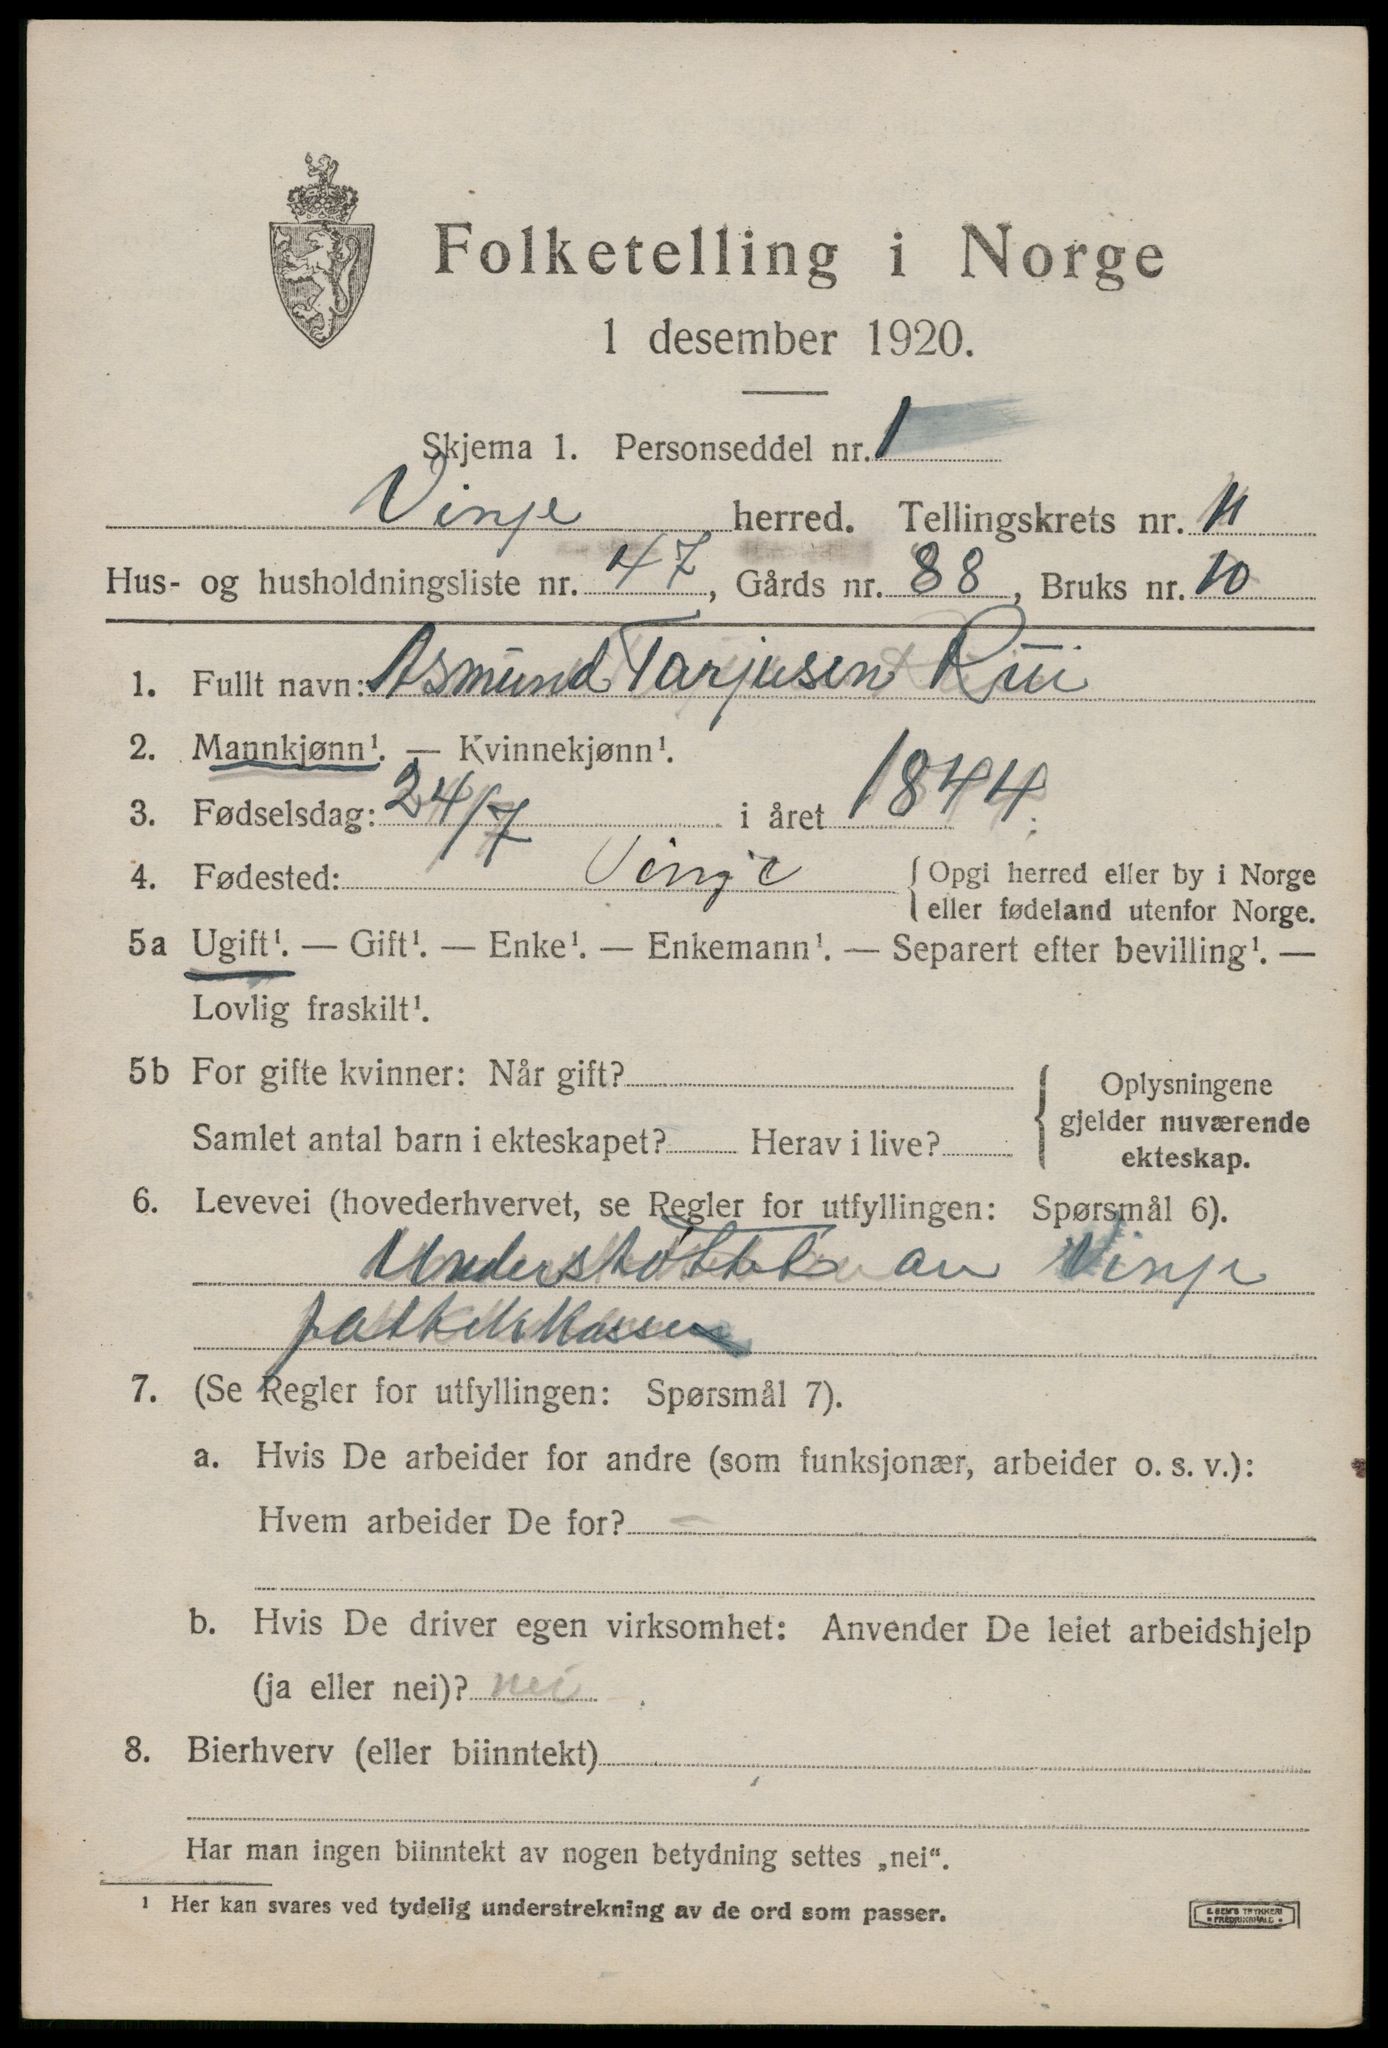 Folketelling i Norge
1 desember 1920.
Skjema 1. Personseddel nr. 1
Vinje herred. Tellingskrets nr. 11
Hus- og husholdningsliste nr. 47, Gårds nr. 88, Bruks nr. 10
1. Fullt navn: Asmund Tarjusen Rui
2. Mannkjønn¹. — Kvinnekjønn¹.
3. Fødselsdag: 24/7 i året 1844.
4. Fødested: Vinje { Opgi herred eller by i Norge
eller fødeland utenfor Norge.
5a Ugift¹. — Gift¹. — Enke¹. — Enkemann¹. — Separert efter bevilling¹. —
Lovlig fraskilt¹.
5b For gifte kvinner: Når gift?
Samlet antal barn i ekteskapet? Herav i live?
{ Oplysningene
gjelder nuværende
ekteskap.
6. Levevei (hovederhvervet, se Regler for utfyllingen: Spørsmål 6).
Understøttet av Vinje
fattikkassen
7. (Se Regler for utfyllingen: Spørsmål 7).
a. Hvis De arbeider for andre (som funksjonær, arbeider o. s. v.):
Hvem arbeider De for? –
b. Hvis De driver egen virksomhet: Anvender De leiet arbeidshjelp
(ja eller nei)? nei
8. Bierhverv (eller biinntekt)
Har man ingen biinntekt av nogen betydning settes „nei".
¹ Her kan svares ved tydelig understrekning av de ord som passer.
E SEM'S TRYKKERI
• FREDRIKSHALD •